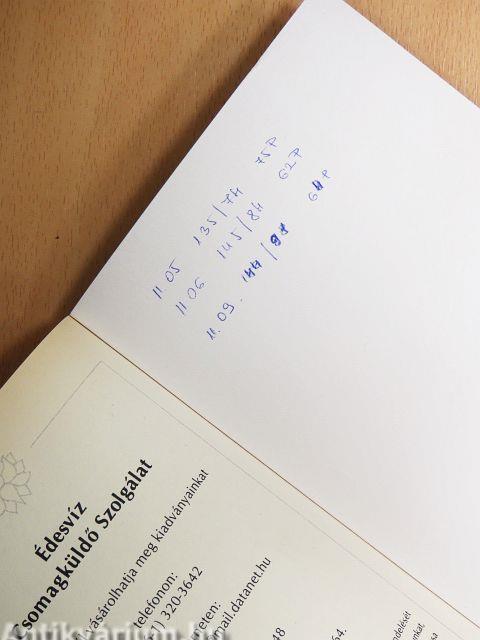 11.05 135/74 75P
11.06 145/84 62P
11.09. 144/98 64P
Édesvíz
somagküldő Szolgálat
ásárolhatja meg kiadványainkat
telefonon:
1) 320-3642
neten:
mail.datanet.hu
48
64.
delését
inkat,
Antikvarium.hu